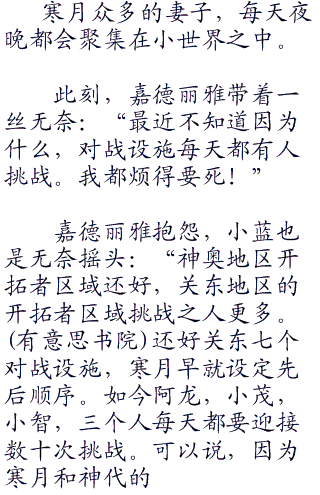 寒月众多的妻子，每天夜
晚都会聚集在小世界之中。
此刻，嘉德丽雅带着一
丝无奈：“最近不知道因为
什么，对战设施每天都有人
挑战。我都烦得要死！”
嘉德丽雅抱怨，小蓝也
是无奈摇头：“神奥地区开
拓者区域还好，关东地区的
开拓者区域挑战之人更多。
(有意思书院)还好关东七个
对战设施，寒月早就设定先
后顺序。如今阿龙，小茂，
小智，三个人每天都要迎接
数十次挑战。可以说，因为
寒月和神代的